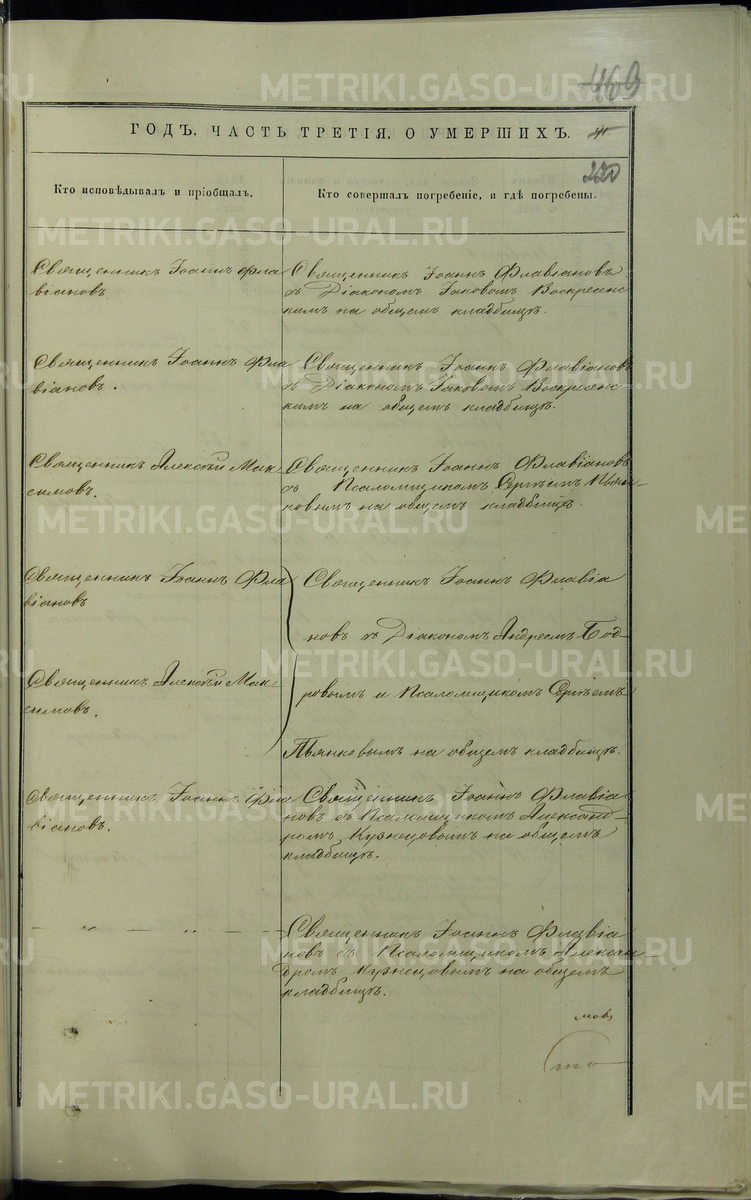 469
ГОДЪ, ЧАСТЬ ТРЕТІЯ, О УМЕРШИХЪ.
230
Кто исповѣдывалъ и пріобщалъ.
Кто совершалъ погребеніе, и гдѣ погребены.
Священникъ Іоаннъ Фла
віановъ
Священникъ Іоаннъ Флавіановъ
съ Діакономъ Іаковомъ Воскресенс-
кимъ на общемъ кладбищѣ.
Священникъ Іоаннъ Фла
віановъ.
Священникъ Іоаннъ Флавіановъ
съ Діакономъ Іаковомъ Воскресенс-
кимъ на общемъ кладбищѣ.
Священникъ Алексѣй Мак-
симовъ.
Священникъ Іоаннъ Флавіановъ
съ Псаломщикомъ Сергѣемъ Пьян-
ковымъ на общемъ кладбищѣ.
Священникъ Іоаннъ Фла
віановъ
Священникъ Алексѣй Мак-
симовъ.
Священникъ Іоаннъ Флавіа
новъ съ Діакономъ Андреемъ Бод-
ровымъ и Псаломщикомъ Сергѣемъ
Пьянковымъ на общемъ кладбищѣ.
Священникъ Іоаннъ Фла
віановъ.
Священникъ Іоаннъ Флавіа
новъ съ Псаломщикомъ Александ-
ромъ Кузнецовымъ на общемъ
кладбищѣ.
— „ — „ — —
Священникъ Іоаннъ Флавіа
новъ съ Псаломщикомъ Алексан-
дромъ Кузнецовымъ на общемъ
кладбищѣ.
мовъ
METRIKI.GASO-URAL.RU